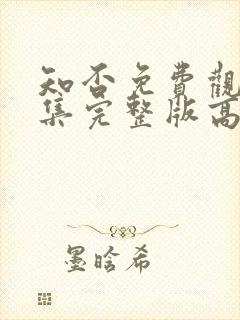 知否免費觀
集完整版高
墨晗希